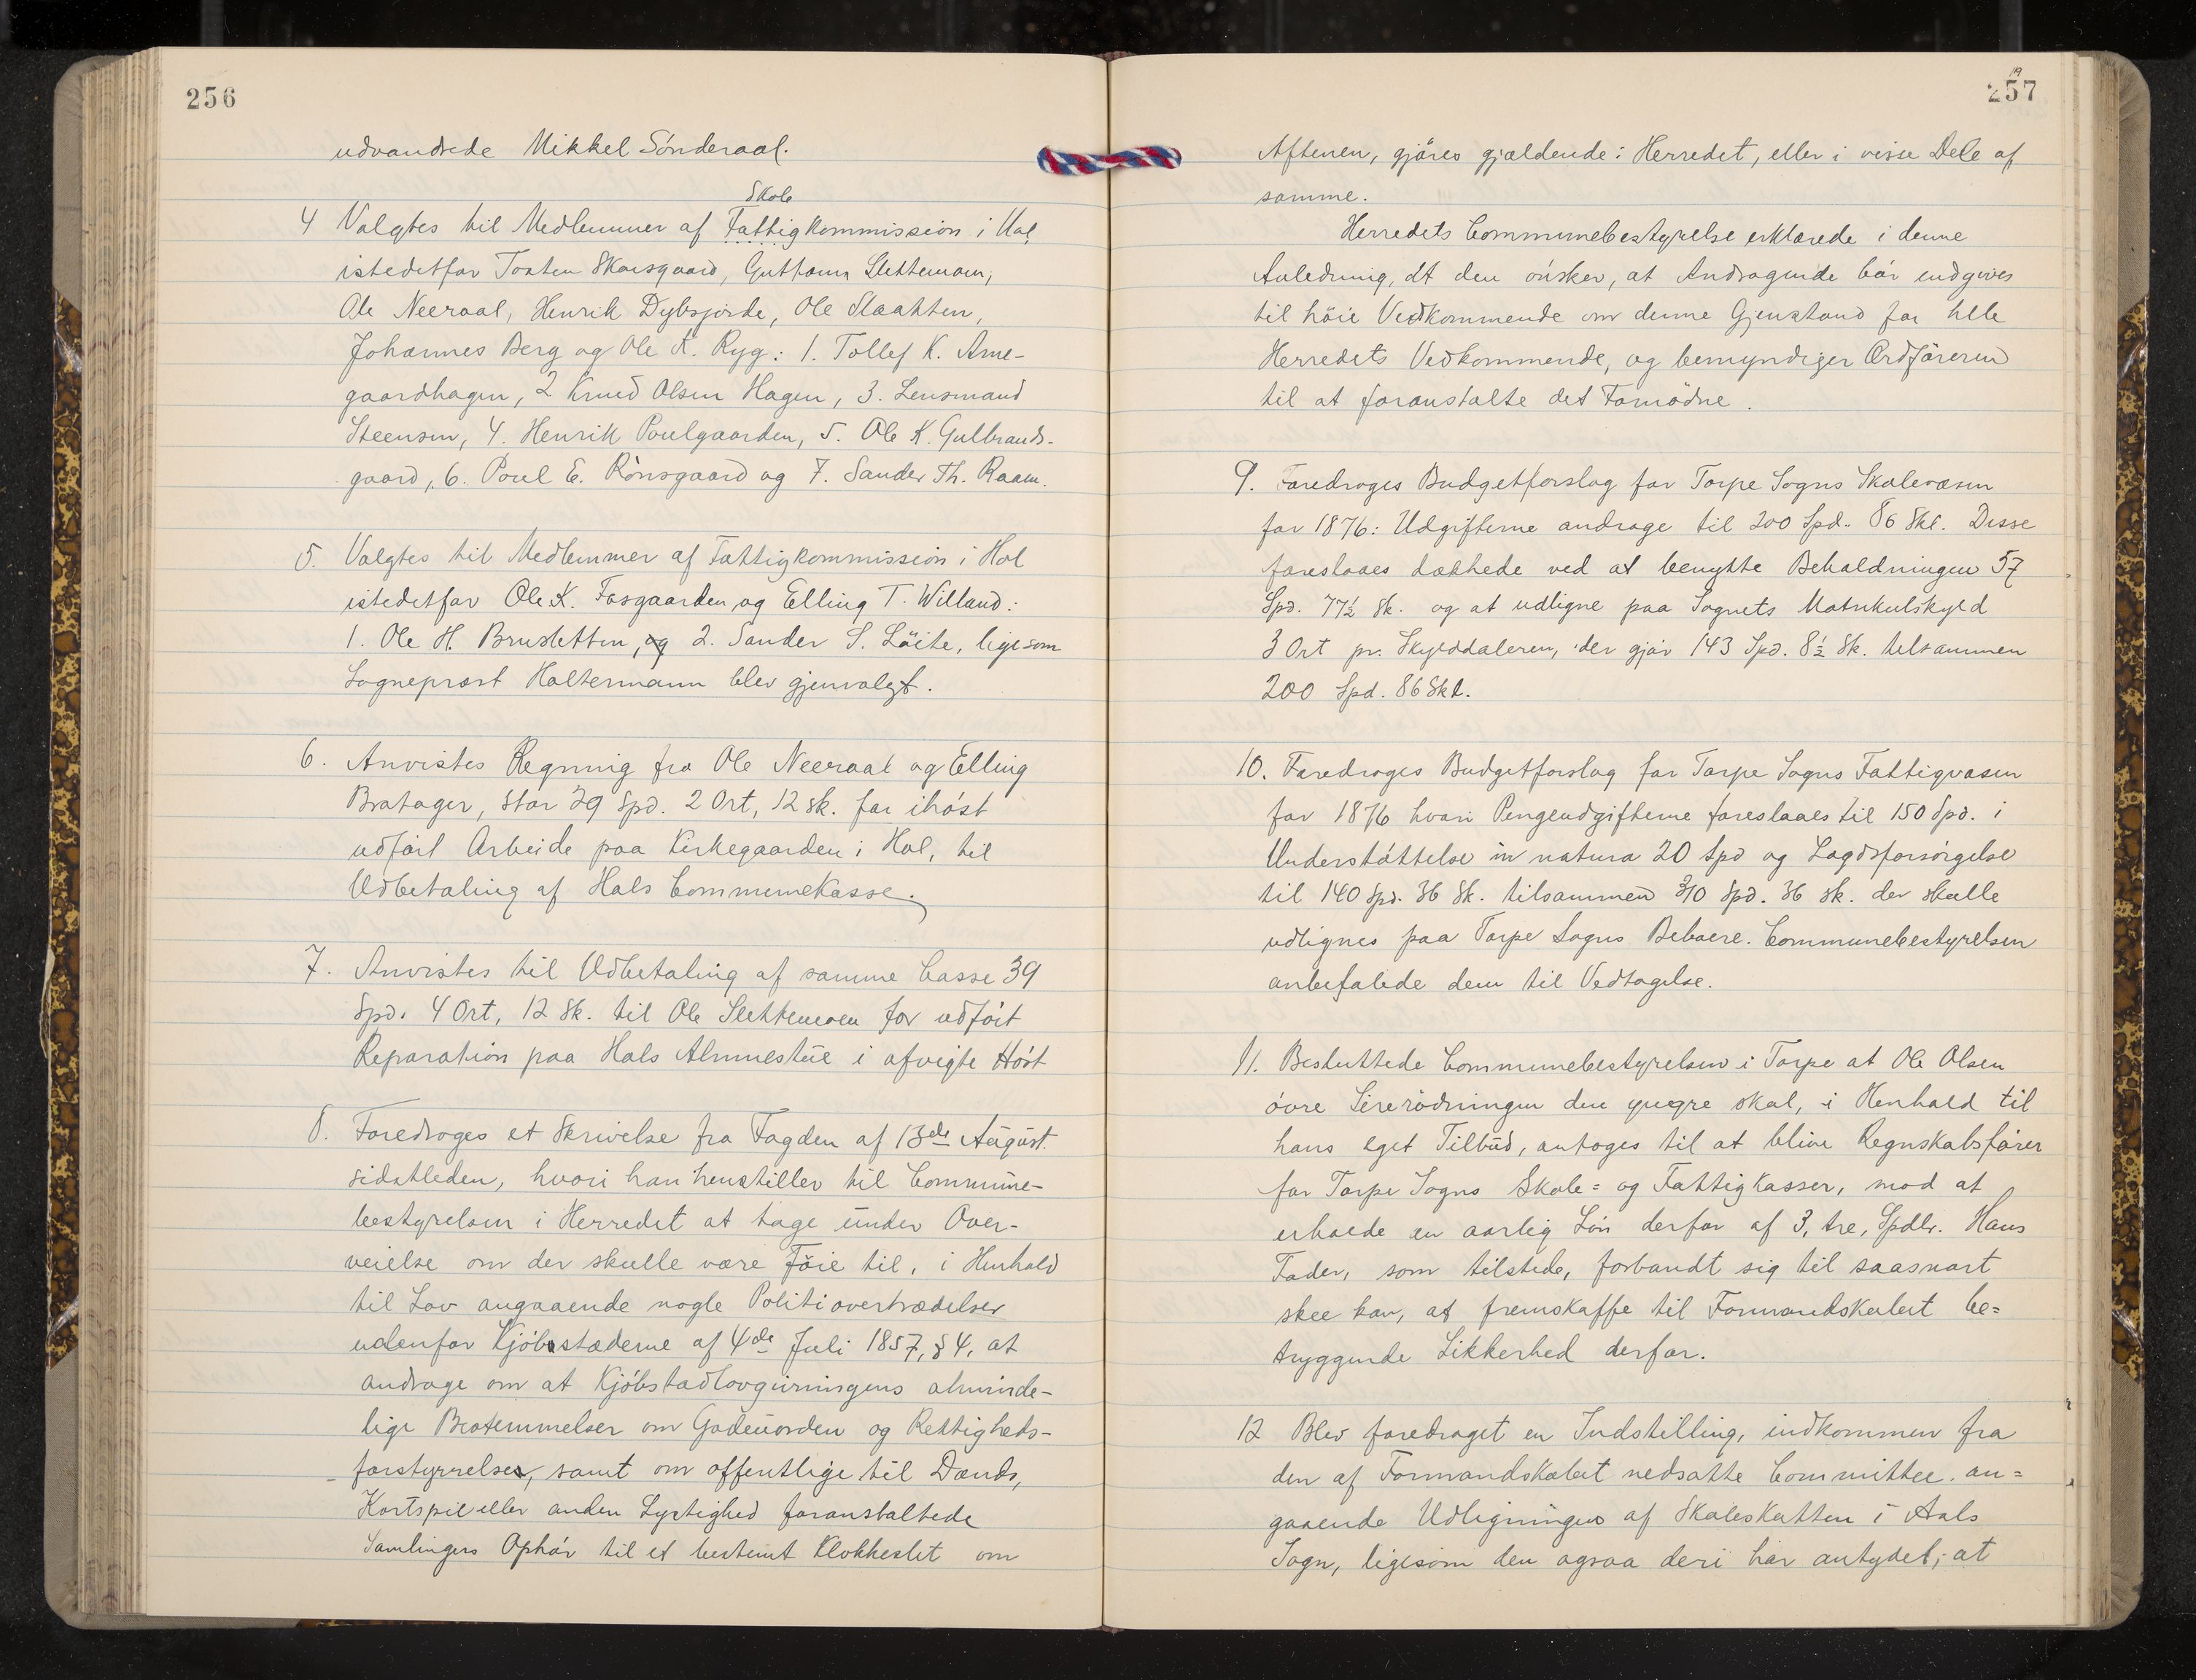 256
udvandrede Mikkel Sónderaal.
Skole
4 Valgtes til Medlemmer af Fattigkommission i Hol
istedetfor Tosten Skarsgaard, Guttorm Slettemoen,
Ole Neeraal, Henrik Dybsjorde, Ole Slaatten,
Johannes Berg og Ole K. Ryg: 1. Tollef K. Arne-
gaardhagen, 2 Knud Olsen Hagen, 3. Lensmand
Steensen, 4. Henrik Poulgaarden, 5. Ole K. Gulbrands-
gaard, 6. Poul E. Rónsgaard og 7. Sander Th. Raaen.
5. Valgtes til Medlemmer af Fattigkommission i Hol
istedetfor Ole K. Fosgaarden og Elling T. Willand:
1. Ole H. Brusletten, og 2. Sander S. Löite, ligesom
Sogneprest Holtermann blev gjenvalgt.
6. Anvistes Regning fra Ole Neeraal og Elling
Bratager, stor 29 Spd. 2 Ort, 12 sk. for ihóst
udfórt Arbeide paa Kirkegaarden i Hol, til
Udbetaling af Hols Communekasse.
7. Anvistes til Udbetaling af samme Casse 39
Spd. 4 Ort, 12 Sk. til Ole Slettemoen for udfórt
Reparation paa Hols Almuestue i afvigte Hóst
8. Foredroges et Skrivelse fra Fogden af 13de August.
sidstleden, hvori han henstiller til Commune-
bestyrelsen i Herredet at tage under Over-
veielse om der skulle være Föie til, i Henhold
til Lov angaaende nogle Politiovertrædelser
udenfor Kjöbstæderne af 4de Juli 1857, § 4, at
andrage om at Kjóbstadlovgivningens alminde-
lige Bestemmelser om Gadeuorden og Rettigheds-
forstyrrelser, samt om offentlige til Dands,
Kortspil eller anden Lystighed foranstaltede
Samlingers Ophór til et bestemt Klokkeslet om
257
Aftenen, gjöres gjældende i Herredet, eller i visse Dele af
samme.
Herredets Communebestyrelse erklærede i denne
Anledning, at den ónsker, at Andragende bór indgives
til höie Vedkommende om denne Gjenstand for hele
Herredets Vedkommende, og bemyndiger Ordföreren
til at foranstalte det Fornödne.
9. Foredroges Budgetforslag for Torpe Sogns Skolevæsen
for 1876: Udgifterne androge til 200 Spd. 86 Skl. Disse
foreslaaes dækkede ved at benytte Beholdningen 57
Spd. 77½ Sk. og at udligne paa Sognets Matrikulskyld
3 Ort pr. Skylddaleren, der gjór 143 Spd. 8½ Sk. tilsammen
200 Spd. 86 Skl.
10. Foredroges Budgetforslag for Torpe Sogns Fattigvæsen
for 1876 hvori Pengeudgifterne foreslaaes til 150 Spd. i
Understóttelse in natura 20 Spd og Lægdsforsórgelse
til 140 Spd. 36 Sk. tilsammen 310 Spd. 36 sk. der skulle
udlignes paa Torpe Sogns Beboere. Communebestyrelsen
anbefalede dem til Vedtagelse.
11. Besluttede Communebestyrelsen i Torpe at Ole Olsen
óvre Sirerödningen den yngre skal, i Henhold til
hans eget Tilbud, antages til at blive Regnskabsfórer
for Torpe Sogns Skole= og Fattigkasser, mod at
erholde en aarlig Lón derfor af 3, tre, Spdlr. Hans
Fader, som tilstede, forbandt sig til saasnart
skee kan, at fremskaffe til Formandskabet be=
tryggende Sikkerhed derfor.
12 Blev foredraget en Indstilling, indkommen fra
den af Formandskabet nedsatte Committee. an=
gaaende Udligningen af Skoleskatten i Aals
Sogn, ligesom den ogsaa deri har antydet, at